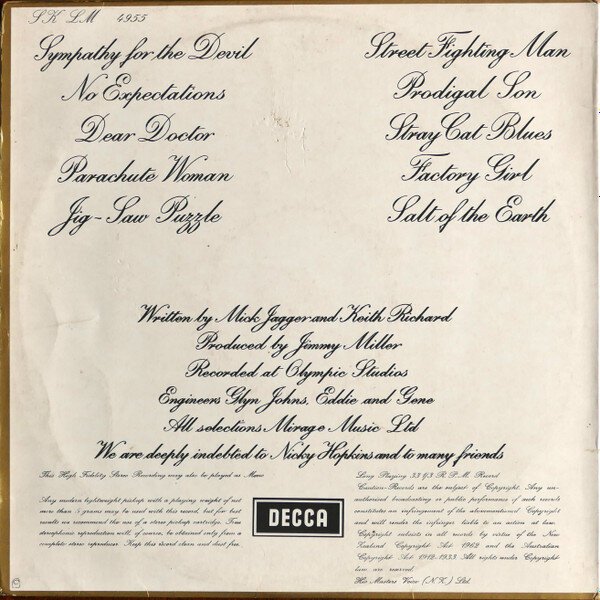 SK LM 4955
Sympathy for the Devil
No Expectations
Dear Doctor
Parachute Woman
Jig-Saw Puzzle
Street Fighting Man
Prodigal Son
Stray Cat Blues
Factory Girl
Salt of the Earth
Written by Mick Jagger and Keith Richard
Produced by Jimmy Miller
Recorded at Olympic Studios
Engineers Glyn Johns, Eddie and Gene
All selections Mirage Music Ltd
We are deeply indebted to Nicky Hopkins and to many friends
This High Fidelity Stereo Recording may also be played as Mono
Any modern lightweight pickup with a playing weight of not
more than 5 grams may be used with this record, but for best
results we recommend the use of a stereo pickup cartridge. True
stereophonic reproduction will, of course, be obtained only from a
complete stereo reproducer. Keep this record clean and dust free.
DECCA
Long Playing 33 1/3 R.P.M. Record
Caution-Records are the subject of Copyright. Any un-
authorised broadcasting or public performance of such records
constitutes an infringement of the aforementioned Copyright
and will render the infringer liable to an action at law.
Copyright subsists in all records by virtue of the New
Zealand Copyright Act 1962 and the Australian
Copyright Act 1912-1933. All rights under Copyright
law are reserved.
His Masters Voice (N.Z.) Ltd.